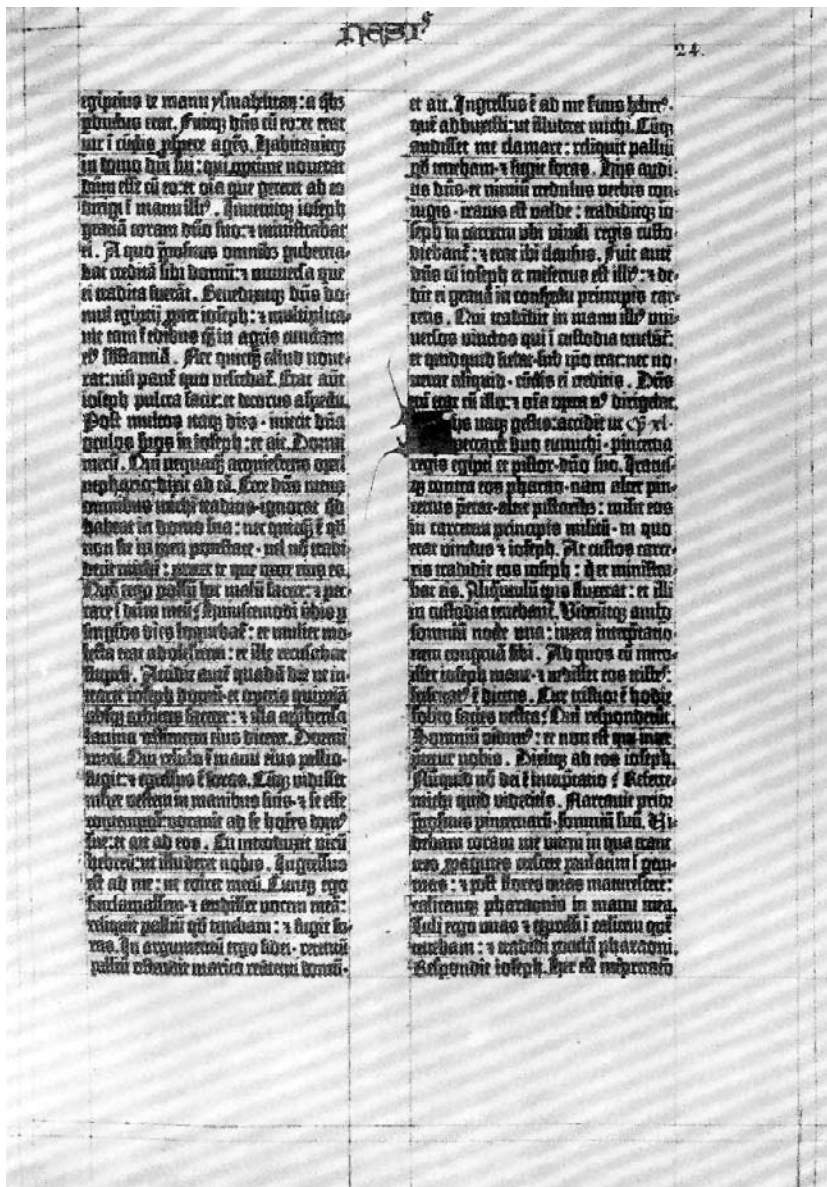 nesis
24.
egiptius de manu ysmahelitaꝝ: a qͥbꝫ
pductus erat. Fuitqꝫ dn̄s cū eo: et erat
uir ī cūctis pspere agēs. Habitauitqꝫ
in domo dn̄i sui: qui optime nouerat
dn̄m esse cū eo: et oīa que gereret ab eo
dirigi ī manu illiꝰ. Inuenitqꝫ ioseph
graciā coram dn̄o suo: ⁊ ministrabat
ei. A quo p̄positus omnibꝫ guberna⸗
bat creditā sibi domū: ⁊ uniuersa que
ei tradita fuerāt. Benedixitqꝫ dn̄s do⸗
mui egiptij ꝓpter ioseph: ⁊ multiplica⸗
uit tam ī edibus qͣꝫ in agris cunctam
eiꝰ sb̄stantiā. Nec quicqͣꝫ aliud noue⸗
rat: nisi panē quo vescebat᷑. Erat aūt
ioseph pulcra facie: et decorus aspectu.
Post multos itaqꝫ dies ∙ iniecit dn̄a
oculos suos in ioseph: et ait. Dormi
mecū. Qui nequaqͣꝫ acquiescens operi
nephario: dixit ad eā. Ecce dn̄s meus
omnibus michi traditis ∙ ignorat qͥd
habeat in domo sua: nec quicqͣꝫ ē qd̄
non sit in mea potestate ∙ uel nō tradi⸗
derit michi: preter te que uxor eius es.
Quō ergo possū hoc malū facere: ⁊ pec⸗
care ī deum meū? Huiuscemodi ūbis p
singulos dies loquebat᷑: et mulier mo⸗
lesta erat adolescenti: et ille recusabat
stuprū. Accidit autē quadā die ut in⸗
traret ioseph domū: et operis quippiā
absqꝫ arbitris faceret: ⁊ illa apprehensa
lacinia vestimenti eius diceret. Dormi
mecū. Qui relicto ī manu eius pallio ∙
fugit: ⁊ egressus ē foras. Cūqꝫ vidisset
mulier vestem in manibus suis ∙ ⁊ se esse
contemptā: vocauit ad se hoīes domꝰ
sue: et ait ad eos. En introduxit virū
hebreū: ut illuderet nobis. Ingressus
est ad me: ut coiret mecū. Cumqꝫ ego
succlamassem ∙ ⁊ audisset vocem meā:
reliquit palliū qd̄ tenebam: ⁊ fugit fo⸗
ras. In argumentū ergo fidei ∙ retentū
palliū ostendit marito reuertenti domū ∙
et ait. Ingressus ē ad me ẜuus hebreꝰ ∙
quē adduxisti: ut illuderet michi. Cūqꝫ
audisset me clamare: reliquit palliū
qd̄ tenebam ∙ ⁊ fugit foras. Hijs audi⸗
tis dn̄s ∙ et nimiū credulus verbis con⸗
iugis ∙ iratus est valde: tradiditqꝫ io⸗
seph in carcerem ubi vincti regis custo⸗
diebant᷑: ⁊ erat ibi clausus. Fuit autē
dn̄s cū ioseph et misertus est illiꝰ: ⁊ de⸗
dit ei gratiā in conspectu principis car⸗
ceris. Qui tradidit in manu illiꝰ uni⸗
uersos vinctos qui ī custodia tenebāt᷑:
et quidquid fiebat ∙ sub ip̄o erat: nec no⸗
uerat aliquid ∙ cūctis ei creditis. Dn̄s
enī erat cū illo: ⁊ oīa opera eiꝰ dirigebat.
His itaqꝫ gestis: accidit ut cꝓ ∙ xl ∙
peccarēt duo eunuchi ∙ pincerna
regis egipti et pistor ∙ dn̄o suo. Iratus⸗
qꝫ contra eos pharao ∙ nam alter pin⸗
cernis p̄erat ∙ alter pistoribꝫ: misit eos
in carcerem principis militū ∙ in quo
erat vinctus ⁊ ioseph. At custos carce⸗
ris tradidit eos ioseph: qͥ et ministra⸗
bat eis. Aliquātulū tp̄is fluxerat: et illi
in custodia tenebant᷑. Videruntqꝫ ambo
somniū nocte una: iuxta interp̄tatio⸗
nem congruā sibi. Ad quos cū intro⸗
isset ioseph mane ∙ ⁊ vidisset eos tristes:
sciscitatꝰ ē dicens. Cur tristior ē hodie
solito facies vestra? Qui responderūt.
Somniū vidimꝰ: et non est qui inter⸗
p̄tetur nobis. Dixitqꝫ ad eos ioseph.
Nūquid nō dei ē interp̄tatio? Referte
michi quid videritis. Narrauit prior
p̄positus pincernarū ∙ somniū suū. Vi⸗
debam coram me vitem in qua erant
tres ꝓpagines crescere paulatim ī gem⸗
mas: ⁊ post flores uuas maturescere:
calicemqꝫ pharaonis in manu mea.
Tuli ergo uuas ⁊ expressi ī calicem quē
tenebam: ⁊ tradidi poculū pharaoni.
Respondit ioseph. Hec est interpretatio